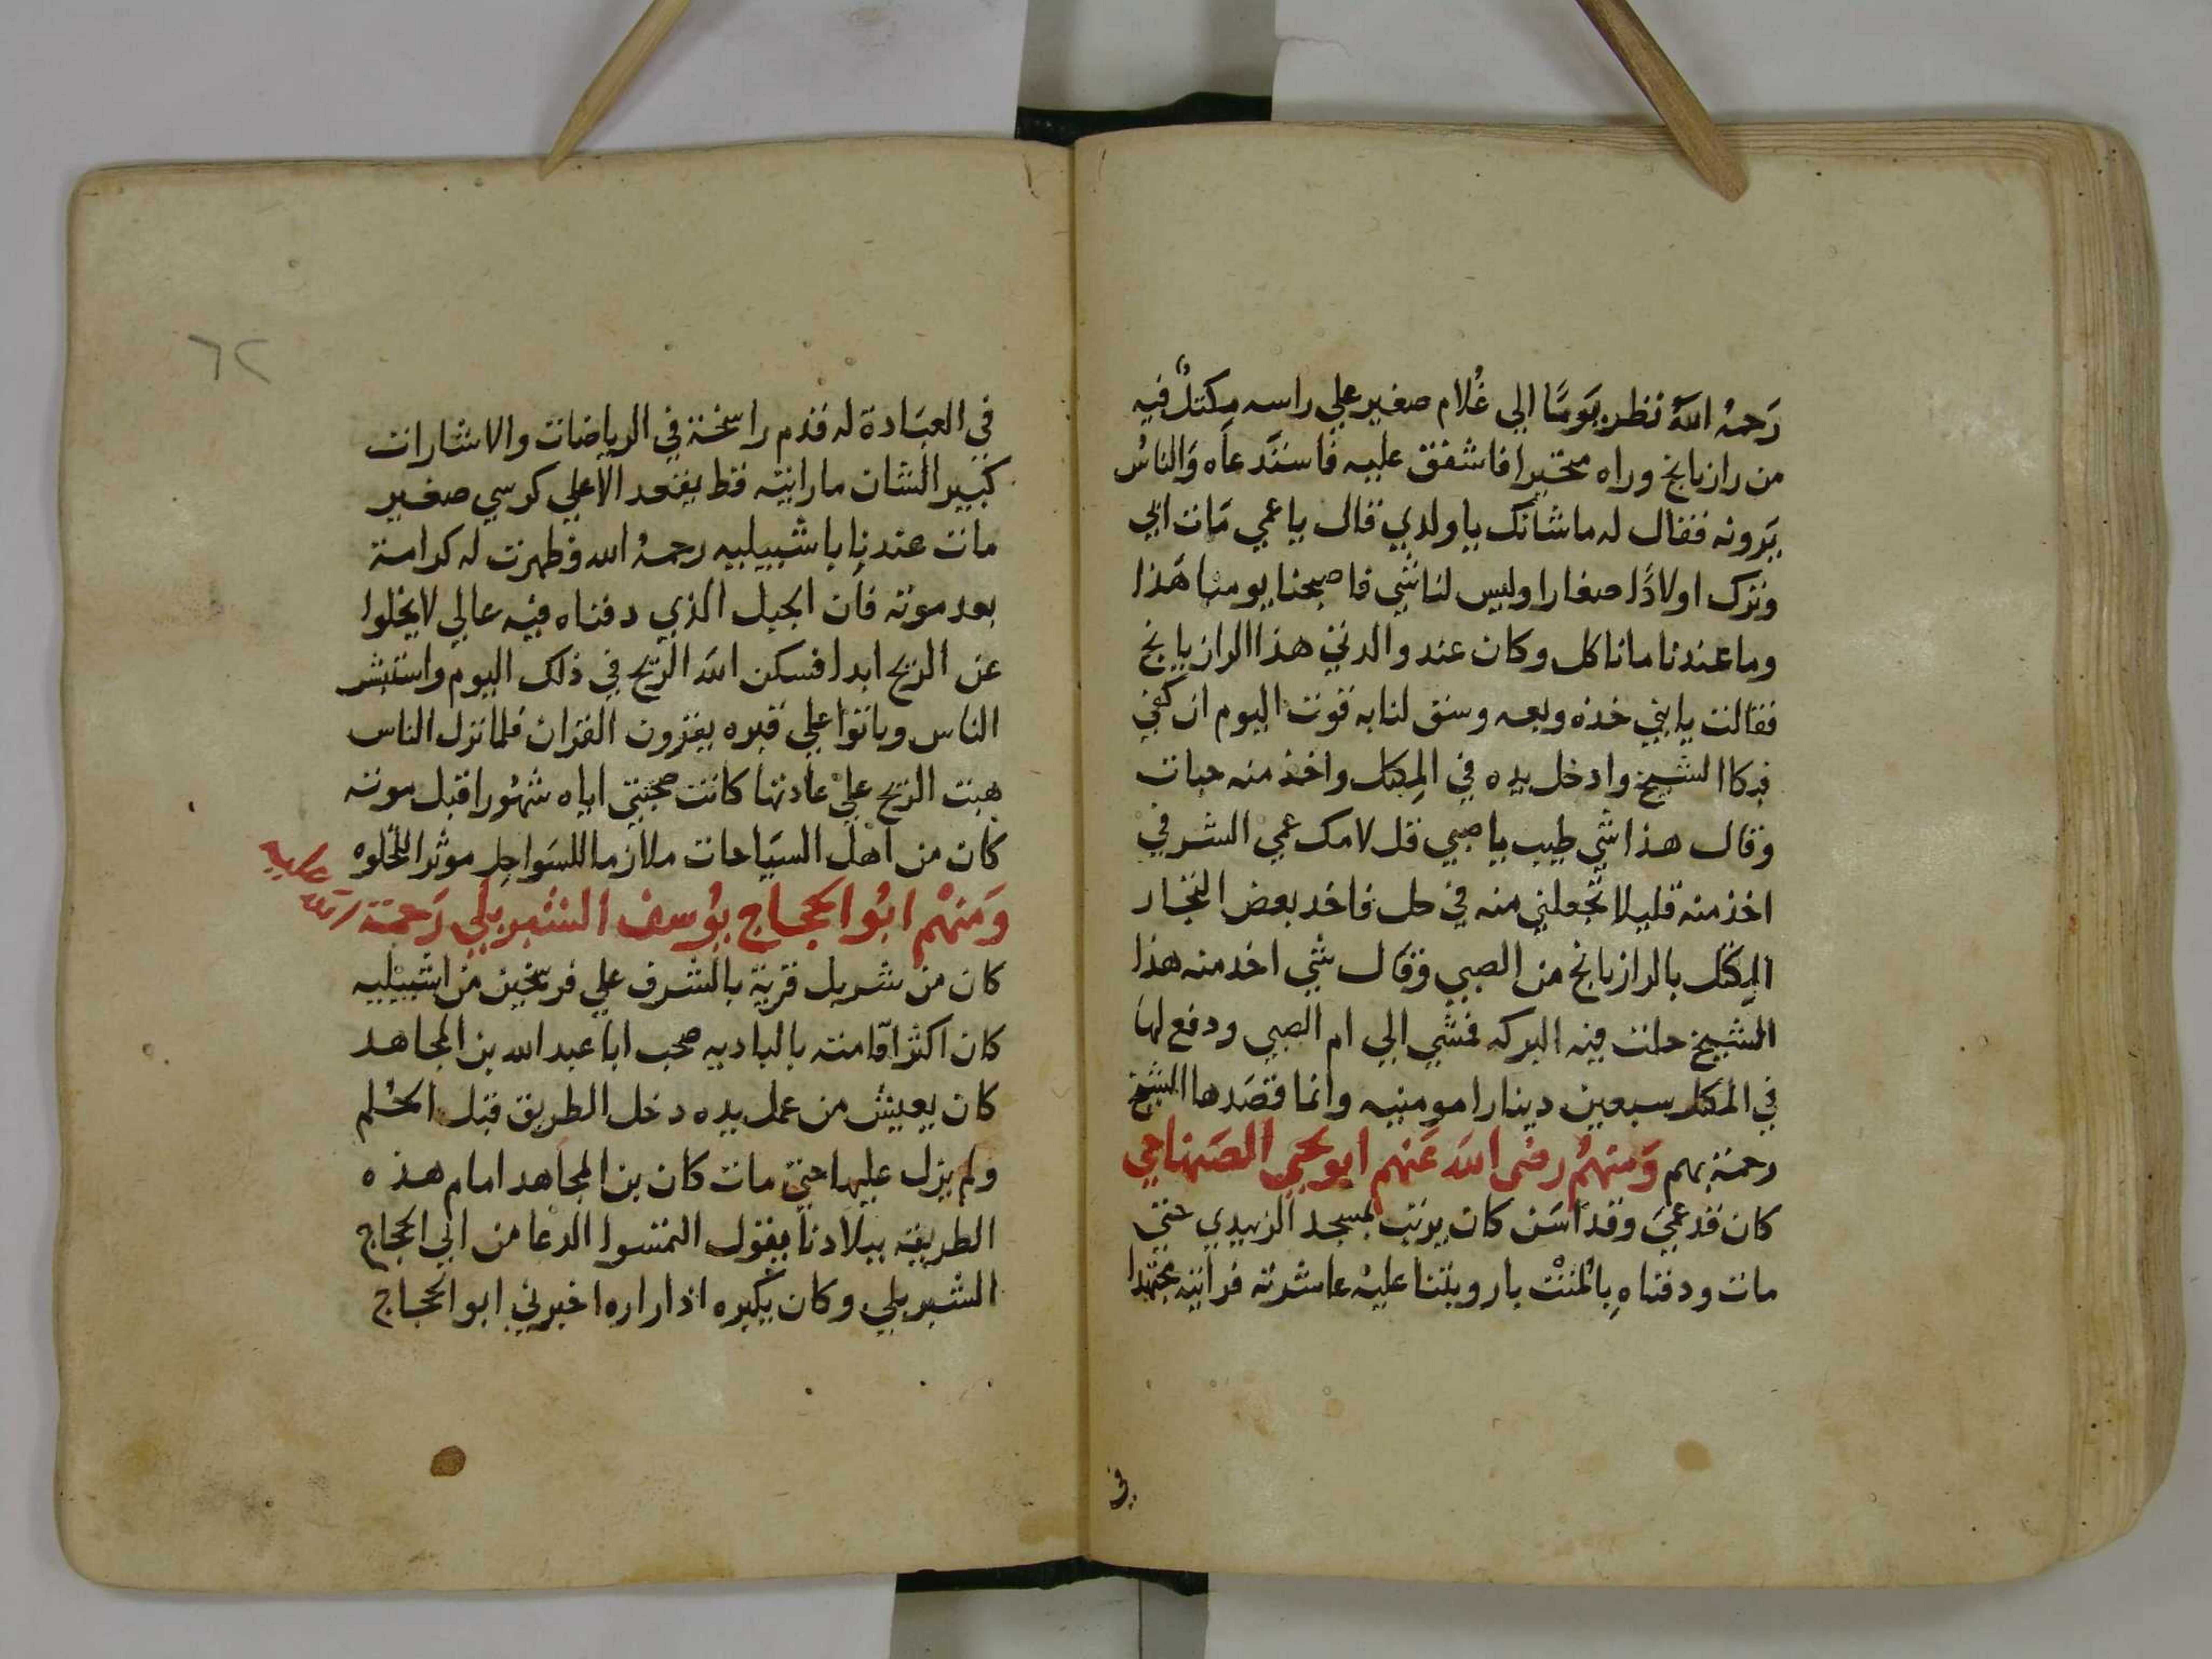 رَحمهُ اللهُ نظر يَومًا الي غُلام صغير علي راسه مِكتلٌ فيه
من رازيانج وراه متحيرا فاشفق عليه فاستَدعاَه وَالناسُ
يَرونه فقال له ما شانك يا ولدي قال يا عمي مَات ابي
وترك اولادًا صغارا وليس لنا شي فاصبحنا يومنا هَذا
وما عندنا ما ناكل وكان عند والدتي هذا الرازيانج
فقالت يا بني خذه وبعه وسق لنا به قوت اليوم ان كفي
فبكا الشيخ وادخل يده في المِكتل واخذ منه حبات
وقال هذا شي طيب يا صبي قل لامك عمي الشرفي
اخذ منه قليلا تجعلني منه في حل فاخد بعض التجار
المِكتل بالرازيانج من الصبي وقال شي اخد منه هذا
الشيخ حلت فيه البركه فمشي الي ام الصبي ودفع لها
في المكتل سبعين دينارا مومنيه وانما قصَدها الشيخ
رحمة بهم وَمنهمُ رضى اللهَ عَنهم ابو يحيي الصَنهاجي
كان قد عميَ وقد اسَن كان يرتب بمسجد الزبيدي حتي
مات ودفناهِ بِالمُنتْ بار وبتنا عليهْ عاشرته فرايته مجتهدا
في
٦٢
في العبَادة له قدم راسخة في الرياضات والاشارات
كبير الشان ما رايته قط يقعد الا علي كرسي صغير
مات عندنا باشبيليه رحمهُ الله وظهرت له كرامة
بعد موته فان الجبل الذي دفناه فيه عالي لا يخلوا
عن الريح ابدا فسكن اللهَ الرَيح في ذلك اليوم واستبشر
الناس وباتوا علي قبره يقرون القران فلما نزل الناس
هبت الريح علي عادتها كانت صحبتي اياه شهُورا قبل موته
كان من اهل السيَاحات ملازما للسَواحِل موثرا للخلوه
وَمنهْم ابُوا الحجاج يُوسف الشبربلي رَحمَة الله عليه
كان من شربل قرية بالشرف علي فرسخين من اشبيليه
كان اكثر اقامته بالباديه صحب ابا عبد الله بن المجاهد
كان يعيش من عمل يده دخل الطريق قبل الحُلم
ولم يزل عليها حتي مات كان بن المجاهد امام هذه
الطريقه ببلادنا يقول التمسوا الدعا من ابي الحجاج
الشبربلي وكان يكبره اذا راه اخبرني ابو الحجاج